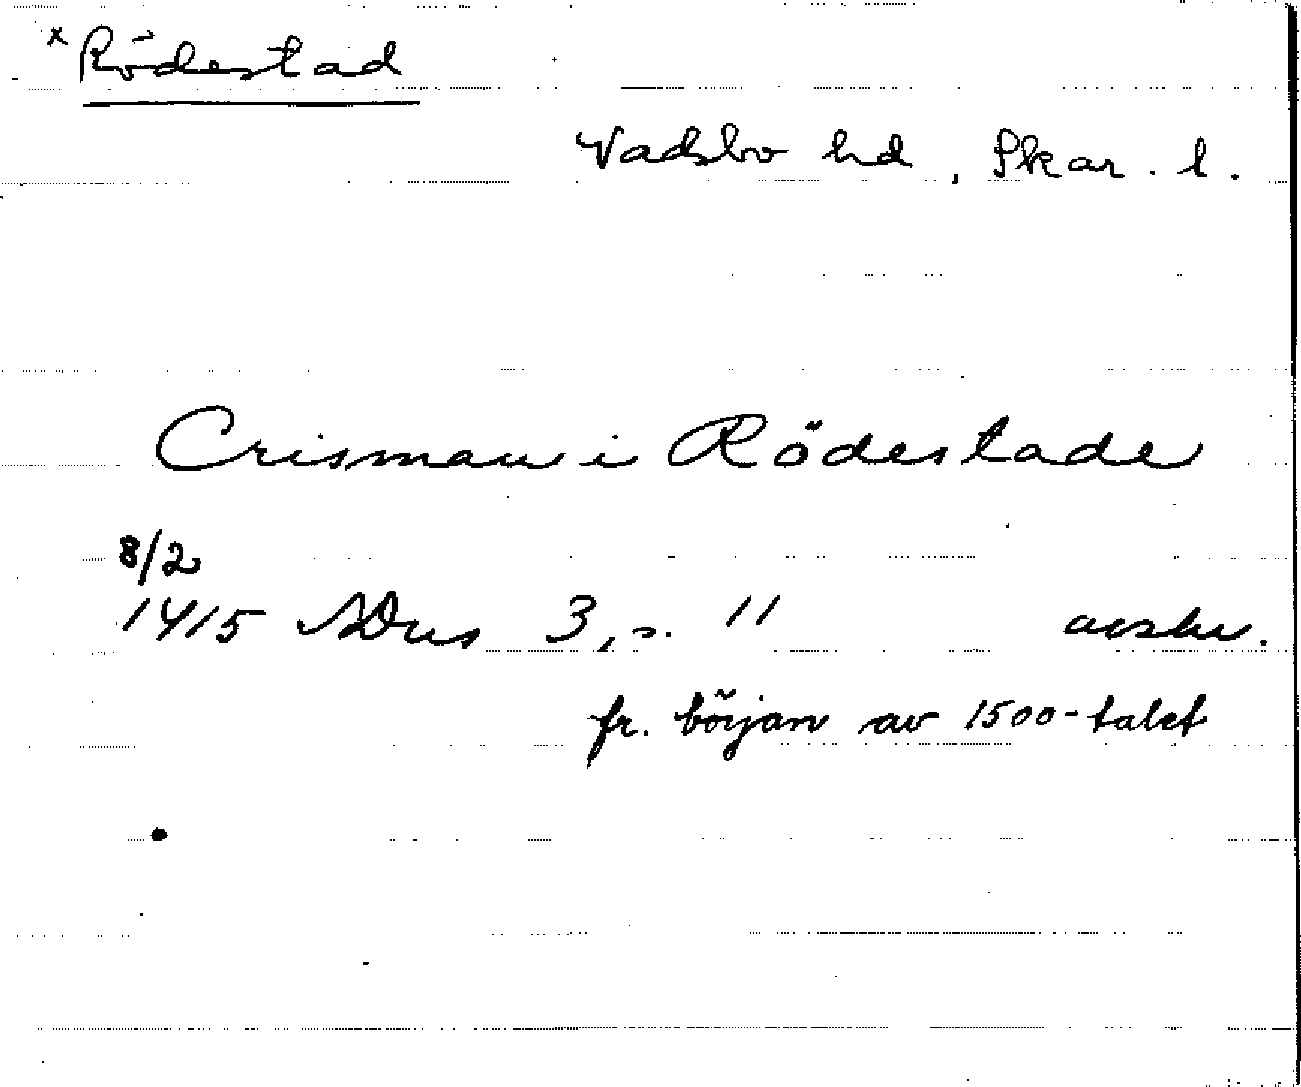 x Rödestad
Vadsbo hd, Skar. l.
Crisman i Rödestade
8/2
1415 SDns 3, s. 11 avskr.
fr. början av 1500-talet